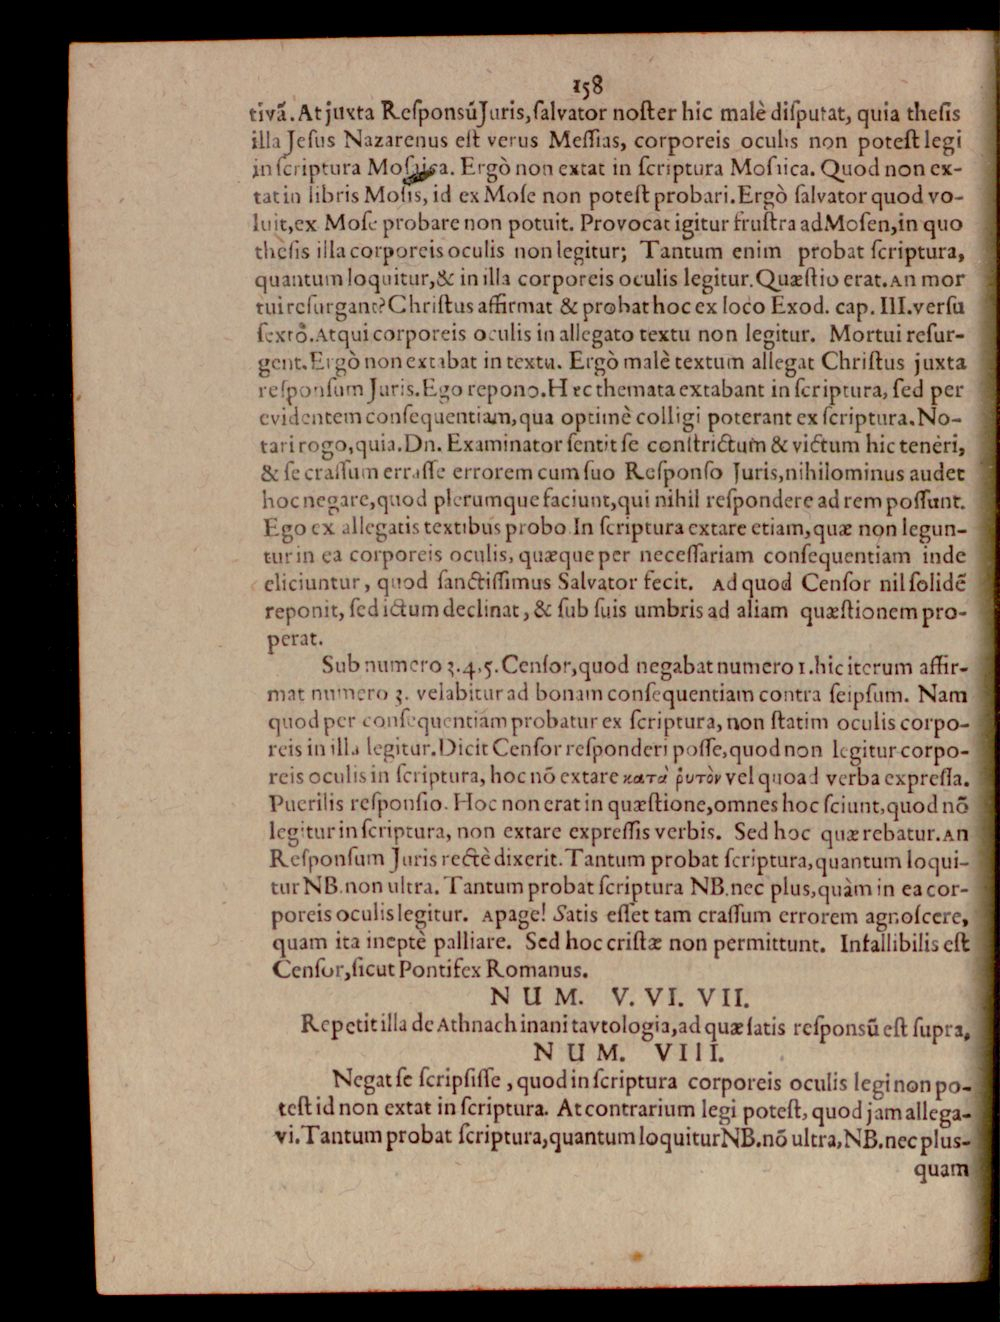 158
tivã. At juxta Reſponsũ Juris, ſalvator noſter hic malè diſputat, quia theſis
illa Jeſus Nazarenus eſt verus Meſſias, corporeis oculis non poteſt legi
in ſcriptura Moſaica. Ergò non extat in ſcriptura Moſaica. Quod non ex-
tat in libris Moſis, id ex Moſe non poteſt probari. Ergò ſalvator quod vo-
luit, ex Moſe probare non potuit. Provocat igitur fruſtra ad Moſen, in quo
theſis illa corporeis oculis non legitur; Tantum enim probat ſcriptura,
quantum loquitur, & in illa corporeis oculis legitur. Quæſtio erat. An mor
tui reſurgant? Chriſtus affirmat & probat hoc ex loco Exod. cap. III. verſu
ſextõ. Atqui corporeis oculis in allegato textu non legitur. Mortui reſur-
gent. Ergò non extabat in textu. Ergò malè textum allegat Chriſtus juxta
reſponſum Juris. Ego repono. Hæc themata extabant in ſcriptura, ſed per
evidentem conſequentiam, qua optimè colligi poterant ex ſcriptura. No-
tari rogo, quia. Dn. Examinator ſentit ſe conſtrictum & victum hic teneri,
& ſe craſſum erraſſe errorem cum ſuo Reſponſo Juris, nihilominus audet
hoc negare, quod plerumque faciunt, qui nihil reſpondere ad rem poſſunt.
Ego ex allegatis textibus probo In ſcriptura extare etiam, quæ non legun-
tur in ea corporeis oculis, quæque per neceſſariam conſequentiam inde
eliciuntur, quod ſanctiſſimus Salvator fecit. Ad quod Cenſor nil ſolidẽ
reponit, ſed ictum declinat, & ſub ſuis umbris ad aliam quæſtionem pro-
perat.
Sub numero 3.4,5. Cenſor, quod negabat numero 1. hic iterum affir-
mat numero 3. velabitur ad bonam conſequentiam contra ſeipſum. Nam
quod per conſequentiam probatur ex ſcriptura, non ſtatim oculis corpo-
reis in illa legitur. Dicit Cenſor reſponderi poſſe, quod non legitur corpo-
reis oculis in ſcriptura, hoc nõ extare κατὰ ῥυτὸν vel quoad verba expreſſa.
Puerilis reſponſio. Hoc non erat in quæſtione, omnes hoc ſciunt, quod nõ
legitur in ſcriptura, non extare expreſſis verbis. Sed hoc quærebatur. An
Reſponſum Juris rectè dixerit. Tantum probat ſcriptura, quantum loqui-
tur NB. non ultra. Tantum probat ſcriptura NB. nec plus, quàm in ea cor-
poreis oculis legitur. Apage! Satis eſſet tam craſſum errorem agnoſcere,
quam ita ineptè palliare. Sed hoc criſtæ non permittunt. Infallibilis eſt
Cenſor, ſicut Pontifex Romanus.
NUM. V. VI. VII.
Repetit illa de Athnach inani tavtologia, ad quæ ſatis reſponsũ eſt ſupra,
NUM. VIII.
Negat ſe ſcripſiſſe, quod in ſcriptura corporeis oculis legi non po-
teſt id non extat in ſcriptura. At contrarium legi poteſt, quod jam allega-
vi. Tantum probat ſcriptura, quantum loquitur NB. nõ ultra, NB. nec plus-
quam